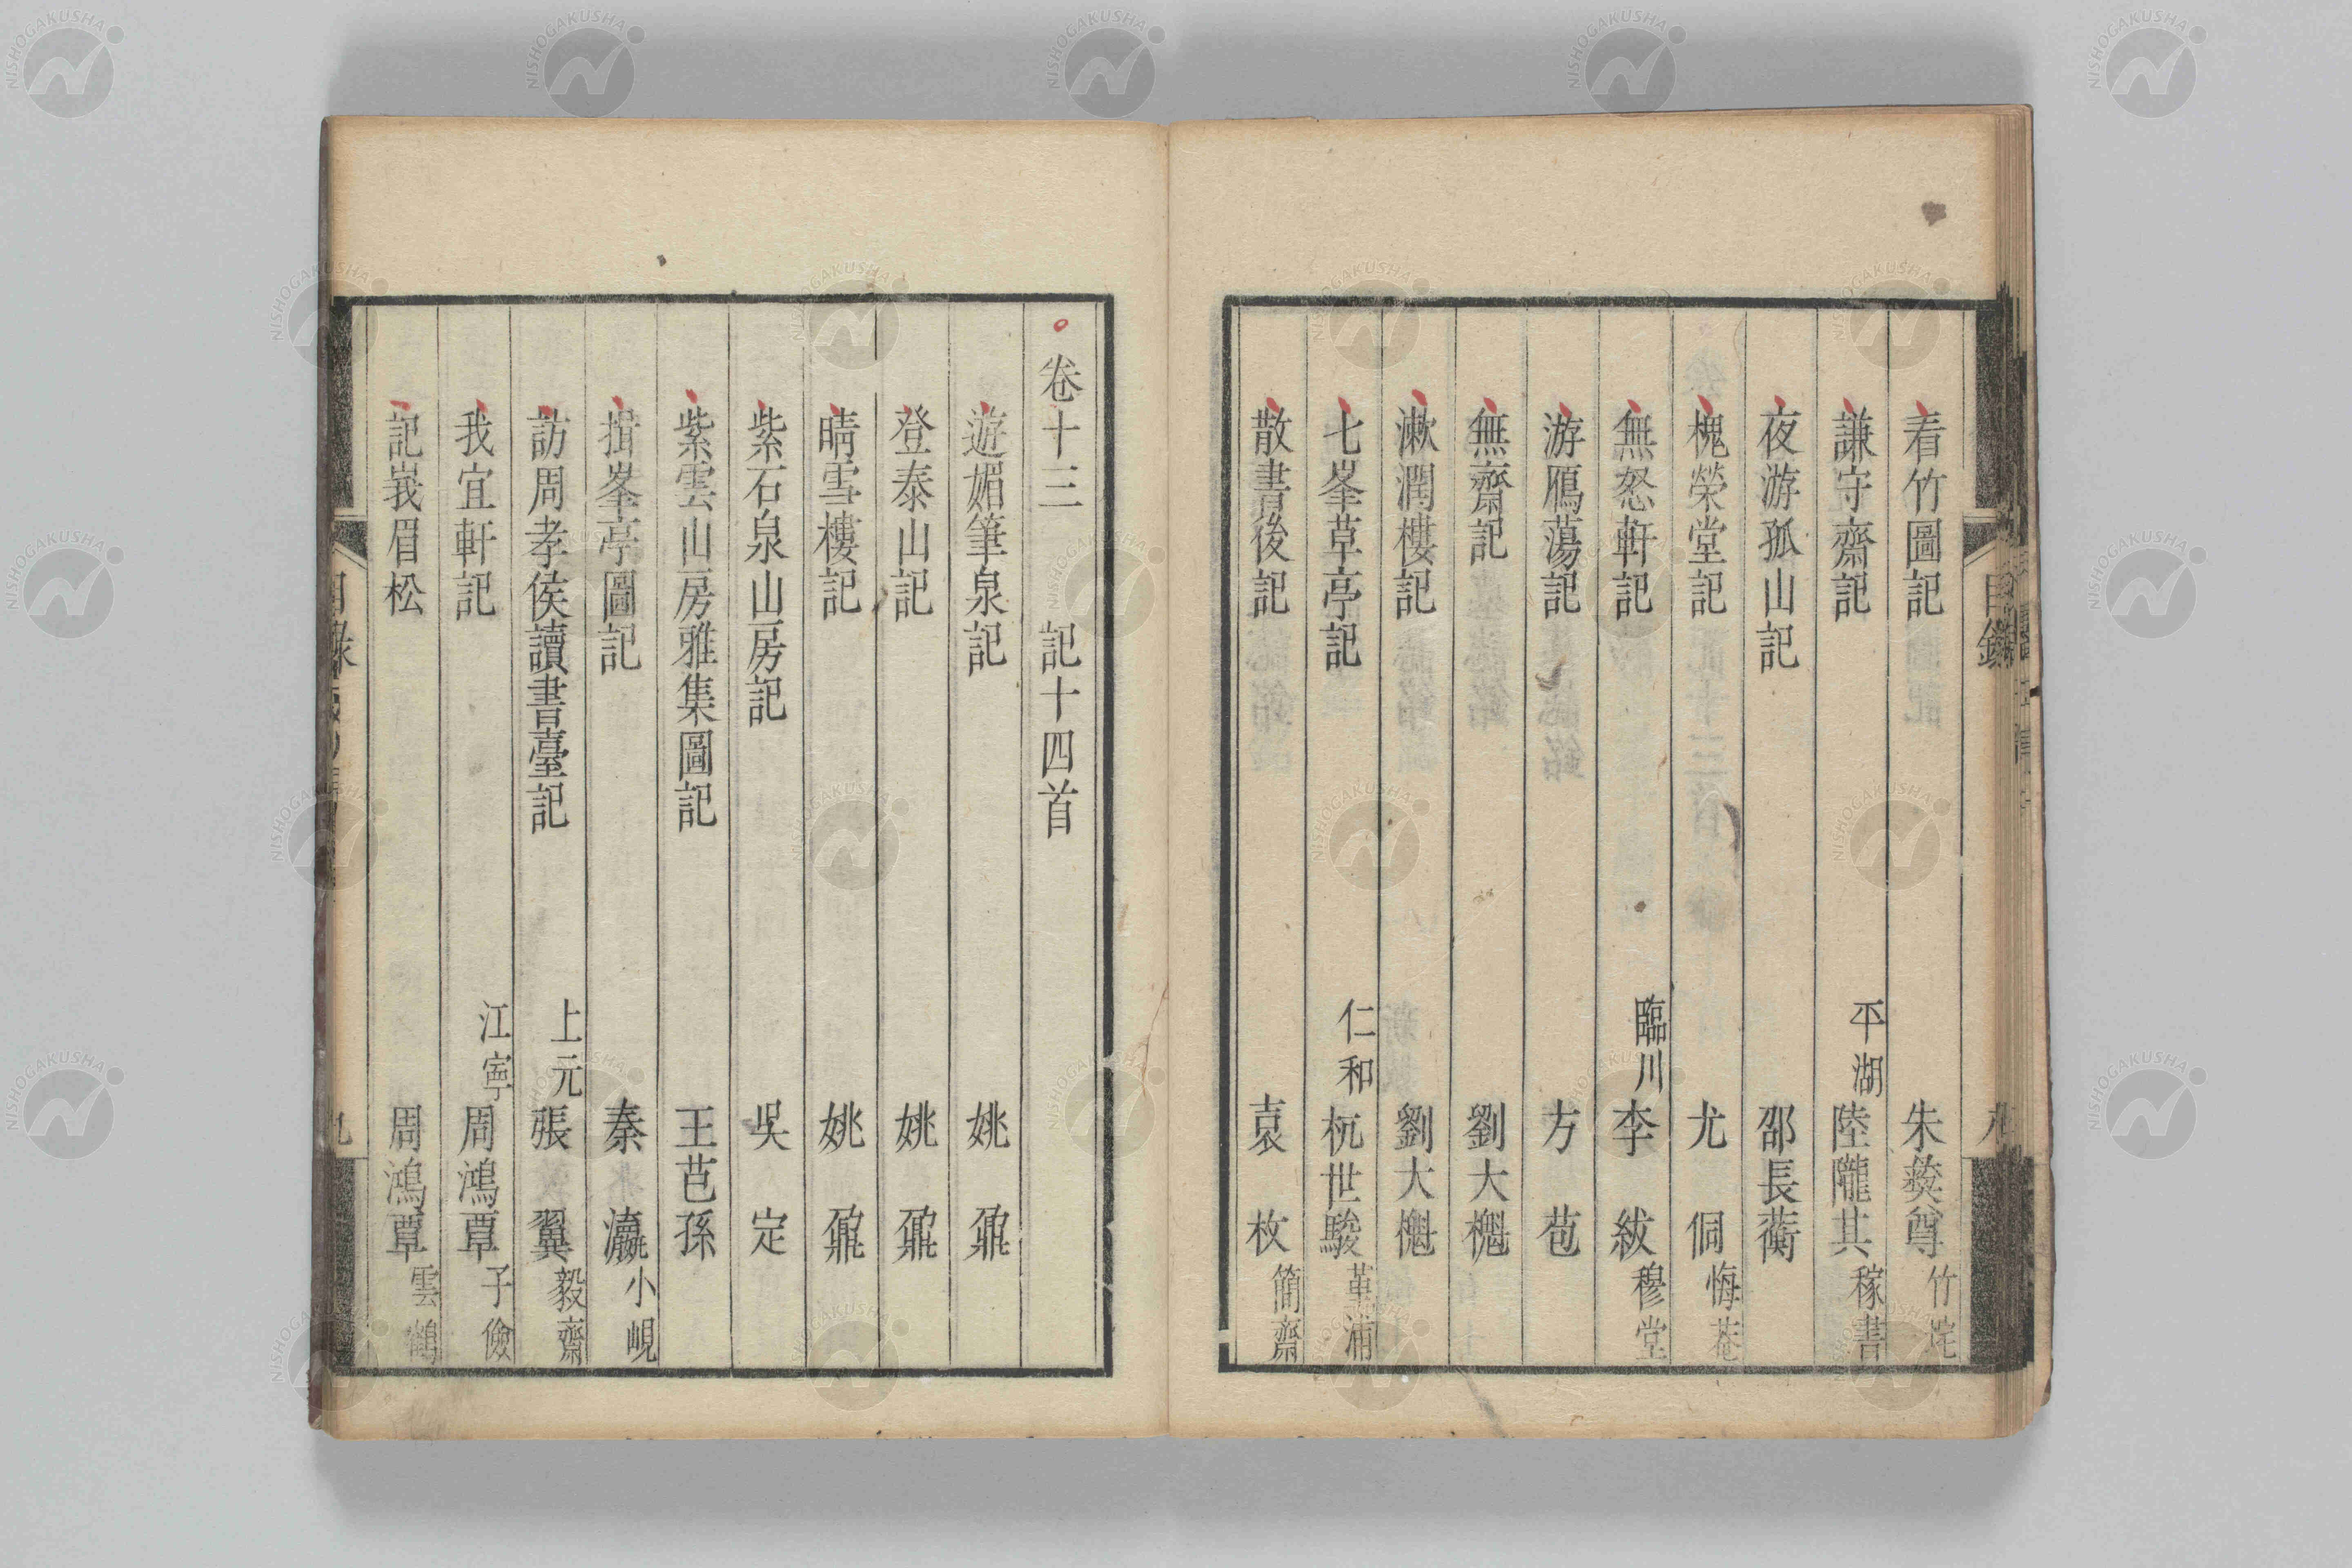 看竹圖記 朱彝尊 竹垞
謙守齋記 平湖 陸隴其 稼書
夜游孤山記 邵長蘅
槐榮堂記 尤侗 悔菴
無怒軒記 臨川 李紱 穆堂
游鴈蕩記 方苞
無齋記 劉大櫆
漱潤樓記 劉大櫆
七峯草亭記 仁和 杭世駿 堇浦
散書後記 袁枚 簡齋
卷十三 記十四首
遊媚筆泉記 姚鼐
登泰山記 姚鼐
晴雪樓記 姚鼐
紫石泉山房記 吳定
紫雲山房雅集圖記 王芑孫
揖峯亭圖記 秦瀛 小峴
訪周孝侯讀書臺記 上元 張翼 毅齋
我宜軒記 江寧 周鴻覃 子儉
記峩眉松 周鴻覃 雲鶴
目錄
九
NISHOGAKUSHA